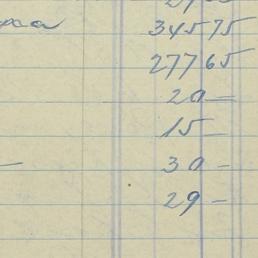 345 75
277 65
20 —
15 —
30 —
29 —